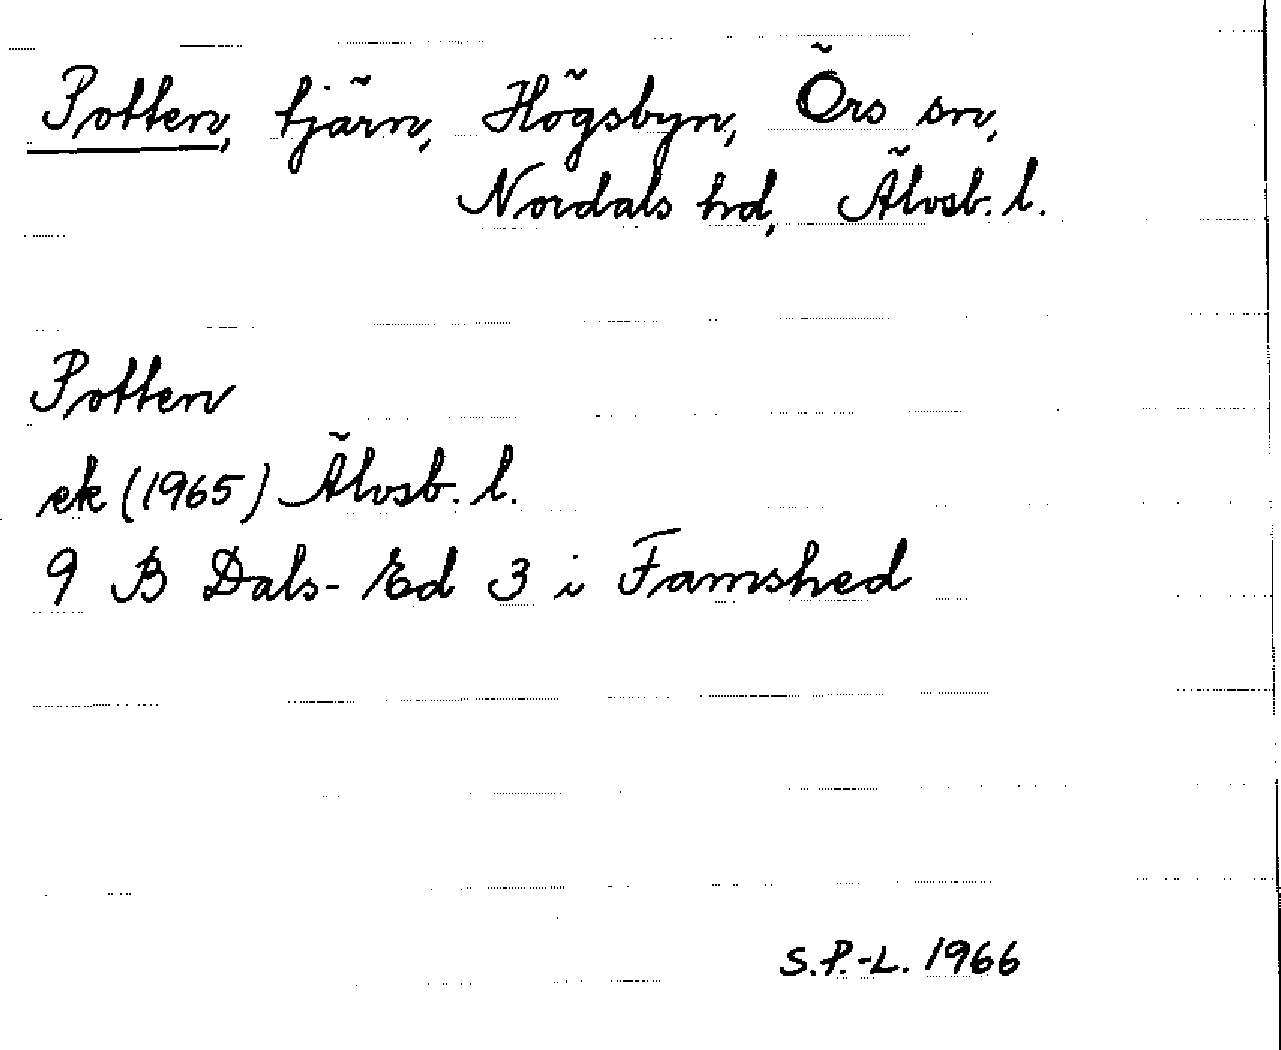 Potten, tjärn, Högsbyn, Örs sn,
Nordals hd, Älvsb. l.
Potten
ek (1965) Älvsb. l.
9 B Dals-Ed 3 i Famshed
S.P.-L. 1966